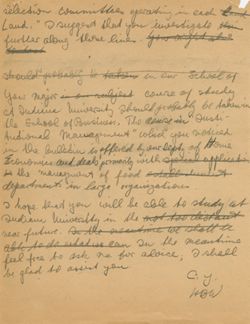 selection committees operating in each
Land." I suggest that you investigate
further along these lines.
should probably be taken in our School of
You major in our subject course of study
at Indiana University should probably be taken in
the School of Business. The course in "Insti-
tutional Management" which you noticed
in the bulletin is offered by our dept. of Home
Economics and deals primarily with special application
to the management of food establishment
departments in large organizations.
I hope that you will be able to study at
Indiana University in the not too distant
near future. In the meantime we shall be
able to do whatever can In the meantime
feel free to ask me for advice, I shall
be glad to assist you